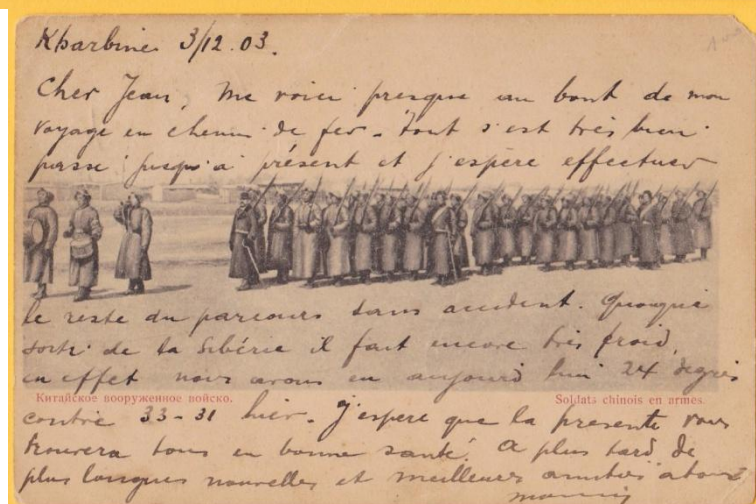 Kharbine 3/12.03.
Cher Jean, Me voici presque au bout de mon
voyage en chemin de fer - tout s'est très bien
passé jusqu'à présent et j'espère effectuer
le reste du parcours sans accident. Quoique
sorti de la Sibérie il fait encore très froid,
en effet nous avons eu aujourd'hui 24 degrés
Китайское вооруженное войско.
Soldats chinois en armes.
contre 33-31 hier. J'espere que la presente vous
trouvera tous en bonne santé. A plus tard de
plus longues nouvelles et meilleures amitiés à tous